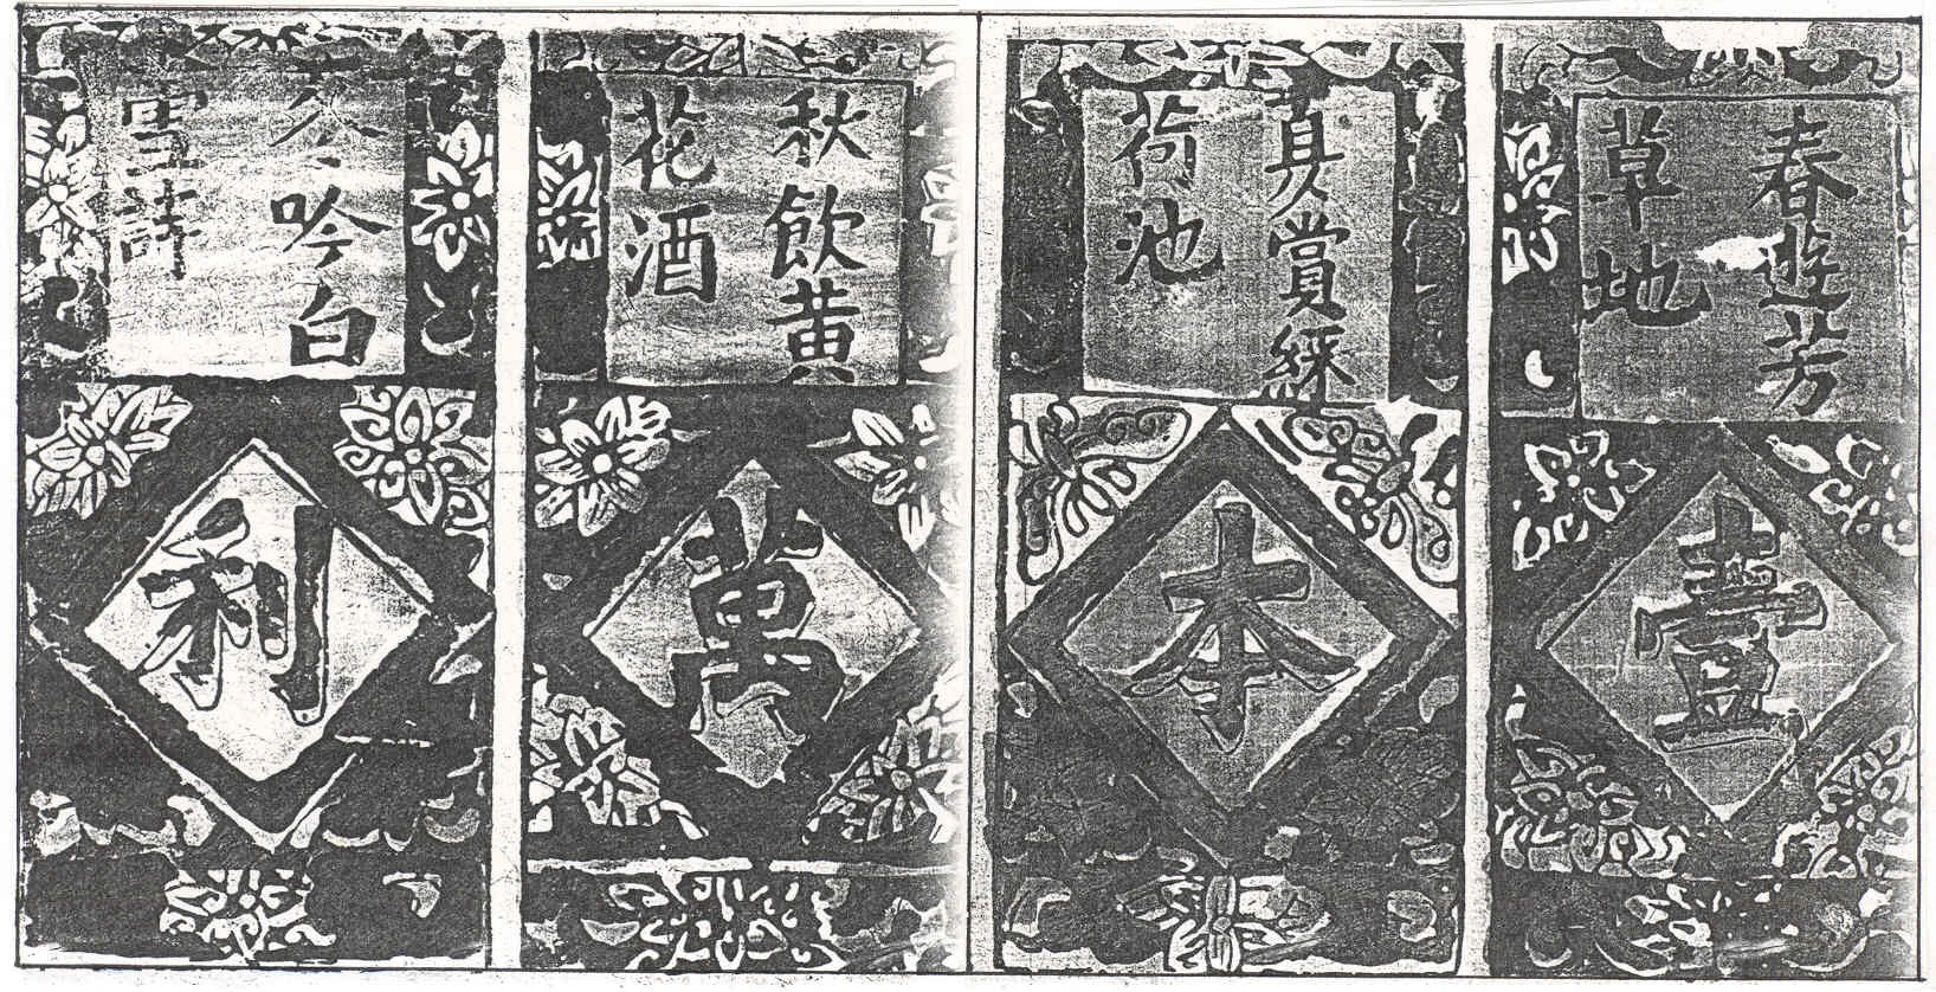 春遊芳
草地
壹
夏賞綠
荷池
本
秋飲黃
花酒
萬
冬吟白
雪詩
利